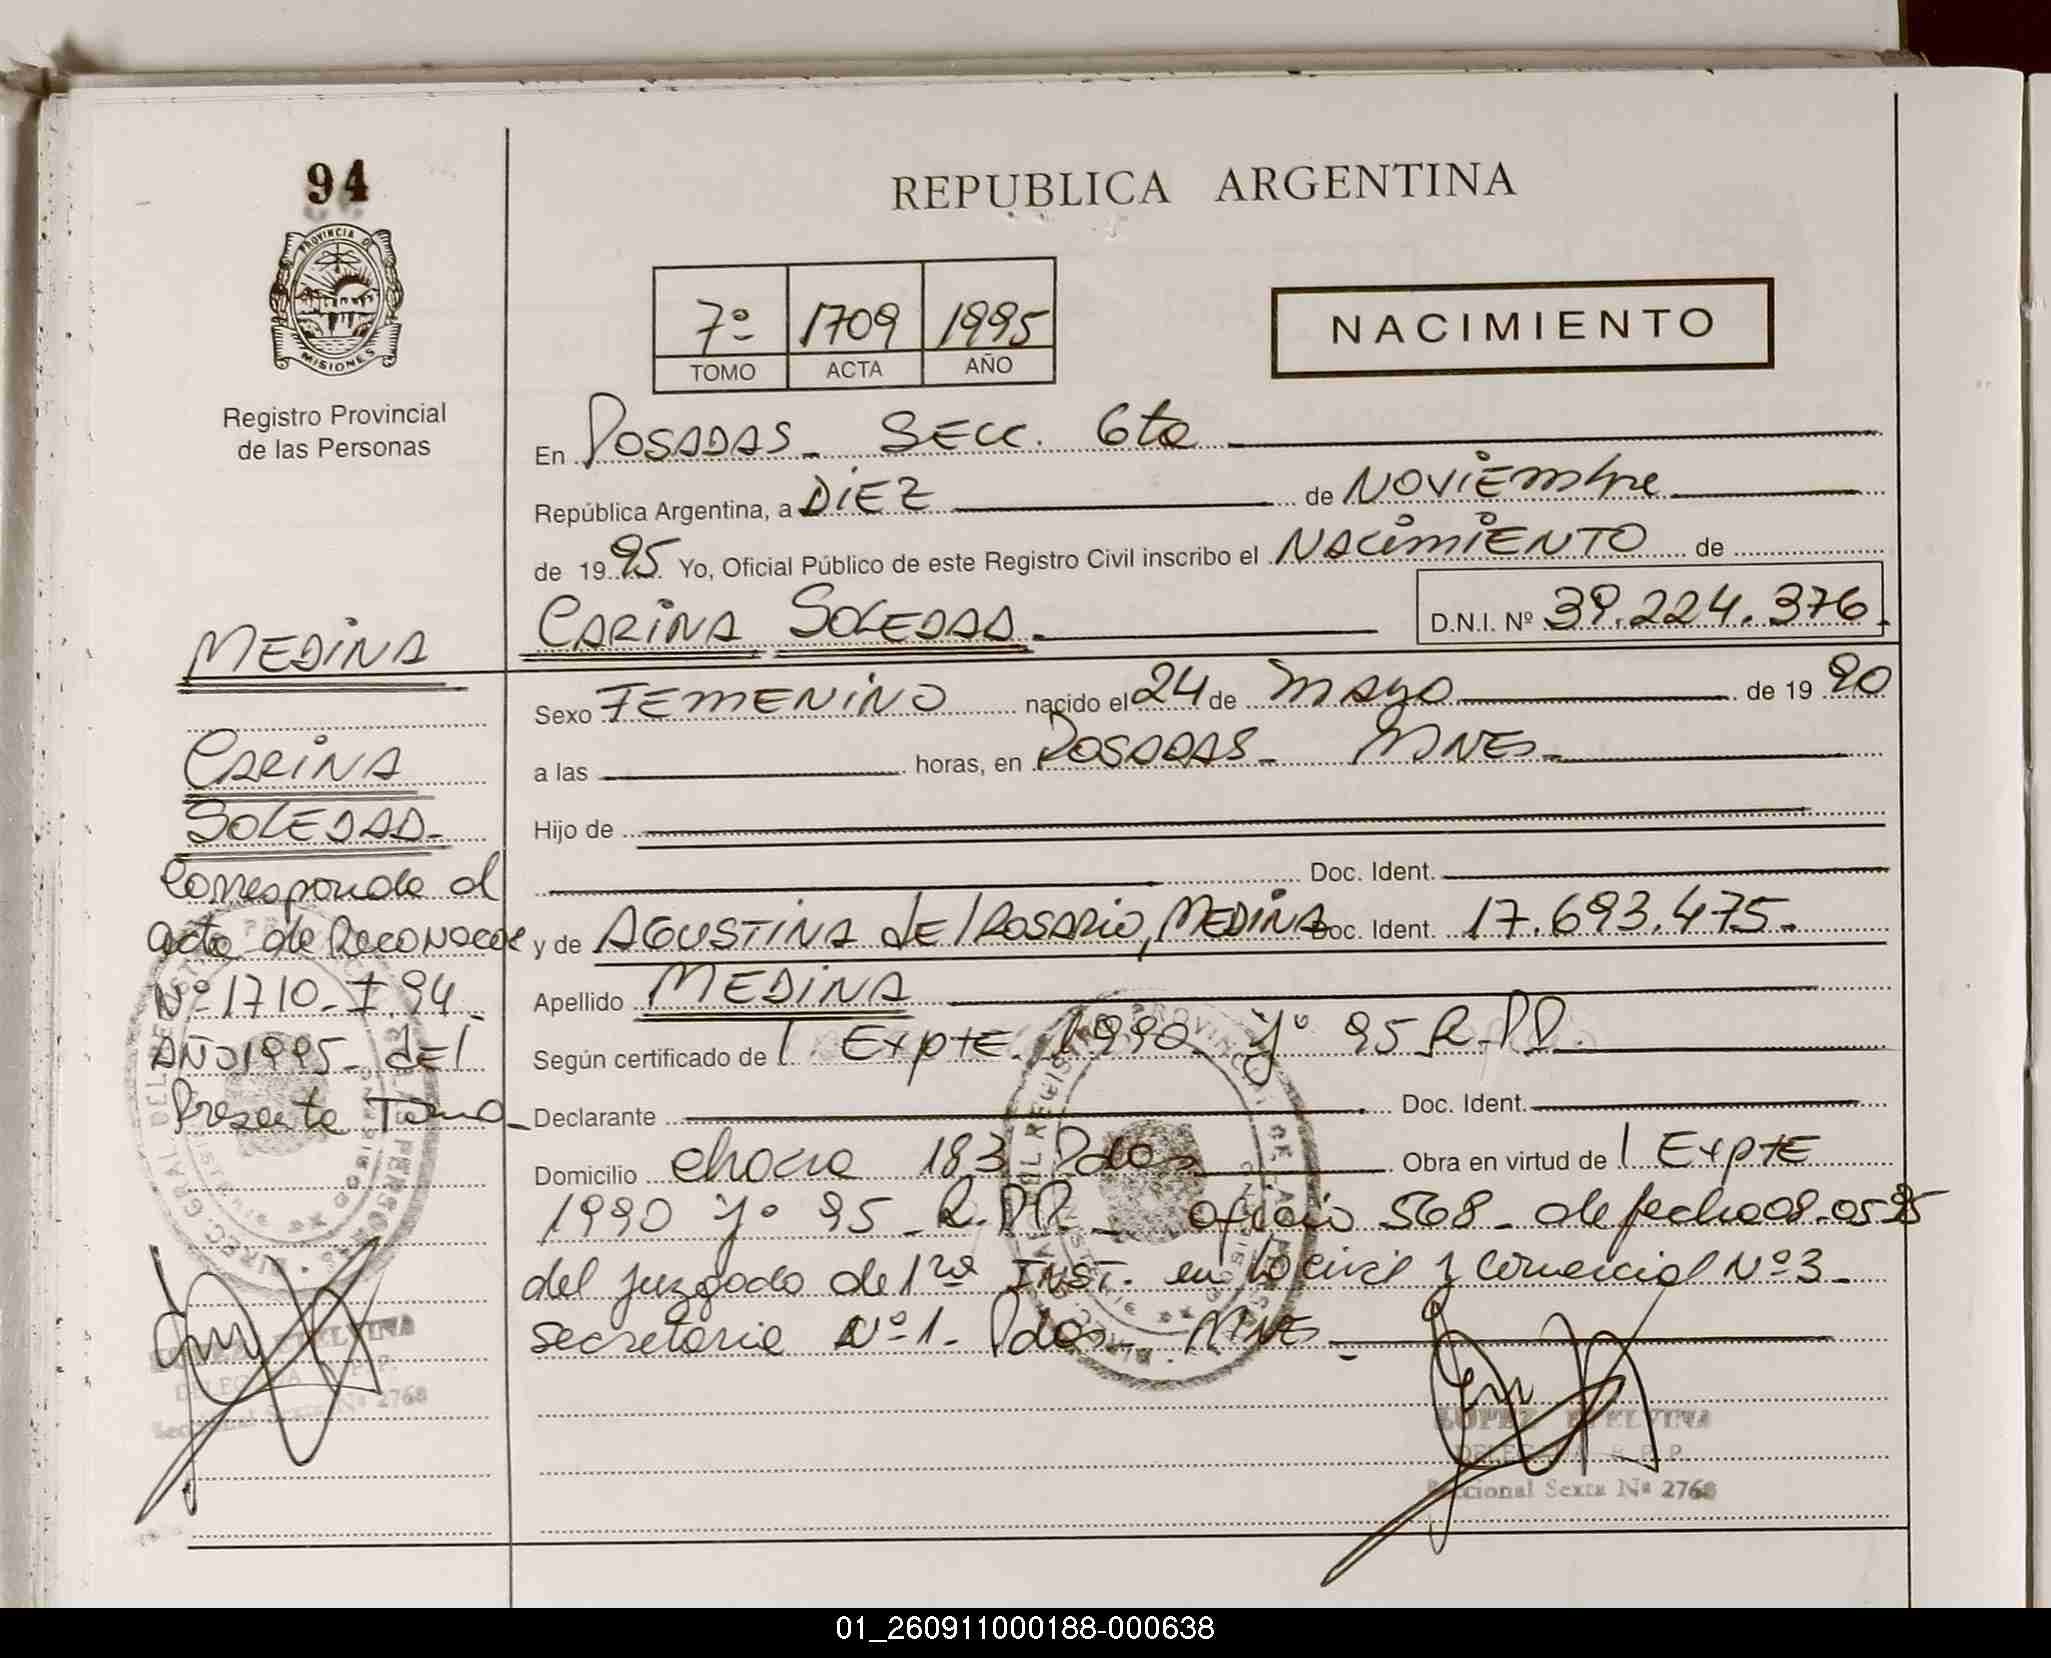 94
PROVINCIA DE
MISIONES
Registro Provincial
de las Personas
REPUBLICA ARGENTINA
7º 1709 1995
TOMO ACTA AÑO
NACIMIENTO
En POSADAS - SECC. 6ta
República Argentina, a DIEZ de NOVIEmbre
de 1995 Yo, Oficial Público de este Registro Civil inscribo el NACIMIENTO de
CARINA SOLEDAD D.N.I. Nº 39.224.376
Sexo FEMENINO nacido el 24 de mayo de 1990
a las horas, en POSADAS - MNES
Hijo de
Doc. Ident.
y de AGUSTINA del ROSARIO, MEDINA Doc. Ident. 17.693.475
Apellido MEDINA
Según certificado de Expte 1990 95 R.P.P.
Declarante Doc. Ident.
Domicilio chacra 183 Pdas Obra en virtud de Expte
1990 95 - R.P.P. - oficio 568 - de fecha 08-05-95
del juzgado de 1ra INST. en lo civil y comercial Nº 3 -
secretaria Nº 1 - Pdas - MNES
MEDINA
CARINA
SOLEDAD -
Corresponde al
acta de Reconoc
Nº 1710 - F 94 -
AÑO 1995 - del
Presente Tomo
LOPEZ ETELVINA
DELEGADA R.P.P.
Seccional Sexta Nº 2768
ETELVINA
DELEGADA R.P.P.
Seccional Sexta Nº 2768
01_260911000188-000638